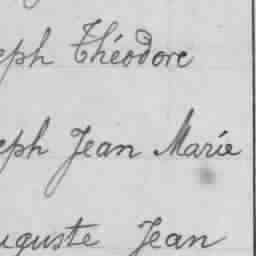 eph Théodore
eph Jean Marie
uguste Jean